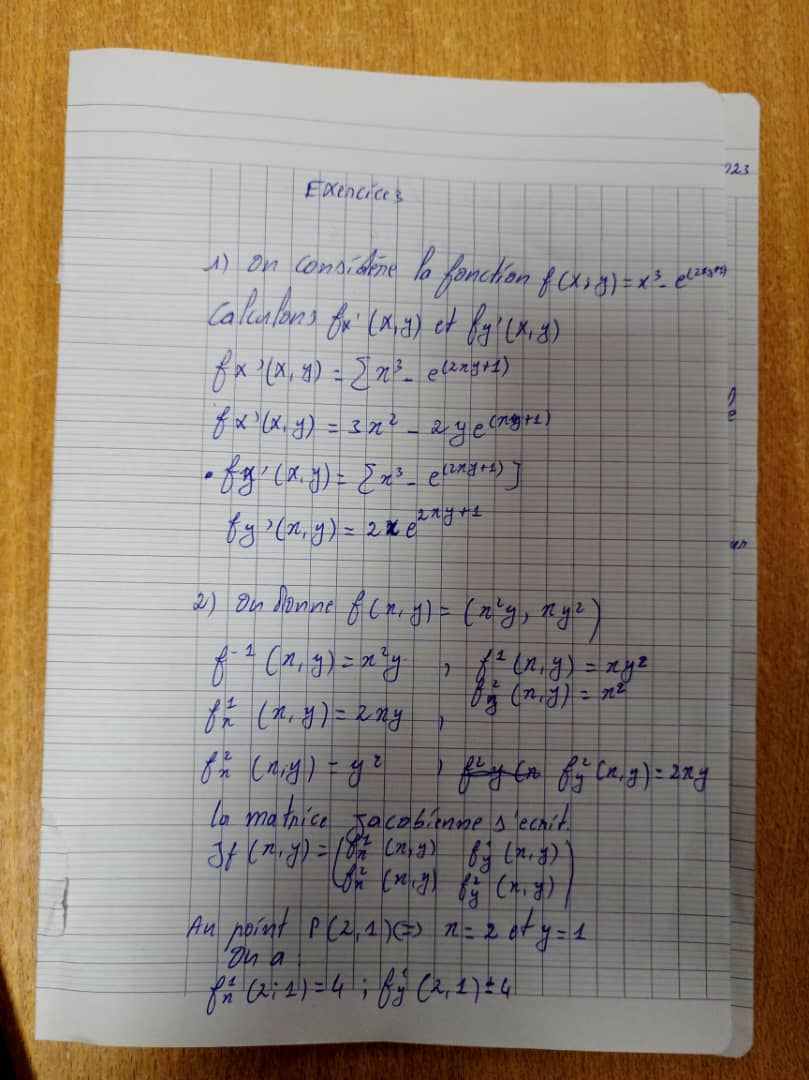 023
Exercices
1) on considère la fonction f(x,y) = x³ - e^(2xy+1)
Calculons fx'(x,y) et fy'(x,y)
fx'(x,y) = [x³ - e^(2xy+1)
fx'(x,y) = 3x² - 2ye^(xy+1)
• fy'(x,y) = [x³ - e^(2xy+1)]
fy'(x,y) = 2xe^2xy+1
2) On donne f(x,y) = (x²y, xy²)
f⁻¹(x,y) = x²y , f¹(x,y) = xy²
f²y(x,y) = x²
f¹x (x,y) = 2xy ,
f²x (x,y) = y² , f²y(x f²y(x,y) = 2xy
la matrice Jacobienne s'ecrit.
Jf(x,y) = (f¹x (x,y) f¹y (x,y)
f²x (x,y) f²y (x,y))
Au point P(2,1) <=> x = 2 et y = 1
On a :
f¹x (2;1) = 4 ; f¹y (2,1) = 4